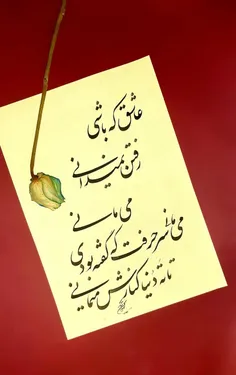 عاشق که باشی
رفتن نمیدانی
می مانی
می مانی سر حرفت که گفته بودی
تا ته دنیا کنارش میمانی